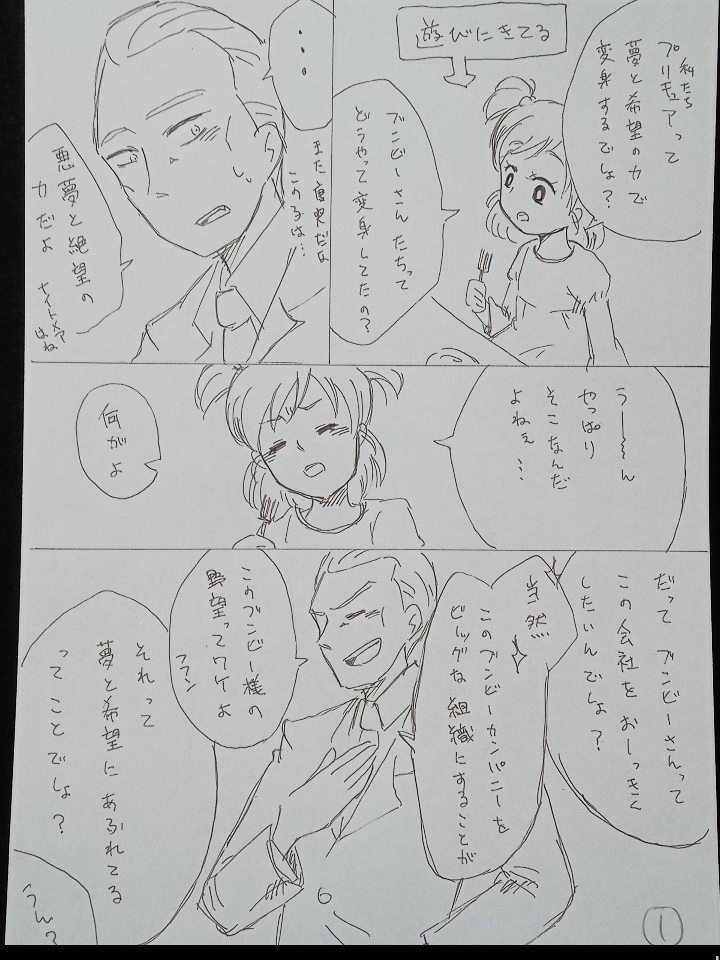 遊びにきてる
私たち
プリキュアって
夢と希望の力で
変身するでしょ?
ブンビーさんたちって
どうやって変身してたの?
・・・
また唐突だな
このコは…
悪夢と絶望の
力だよ
ナイトメア
はね
うーーん
やっぱり
そこなんだ
よねぇ…
何がよ
だってブンビーさんって
この会社をおーっきく
したいんでしょ?
当然
このブンビーカンパニーを
ビッグな組織にすることが
このブンビー様の
野望ってワケよ
フフン
それって
夢と希望にあふれてる
ってことでしょ?
うん?
1